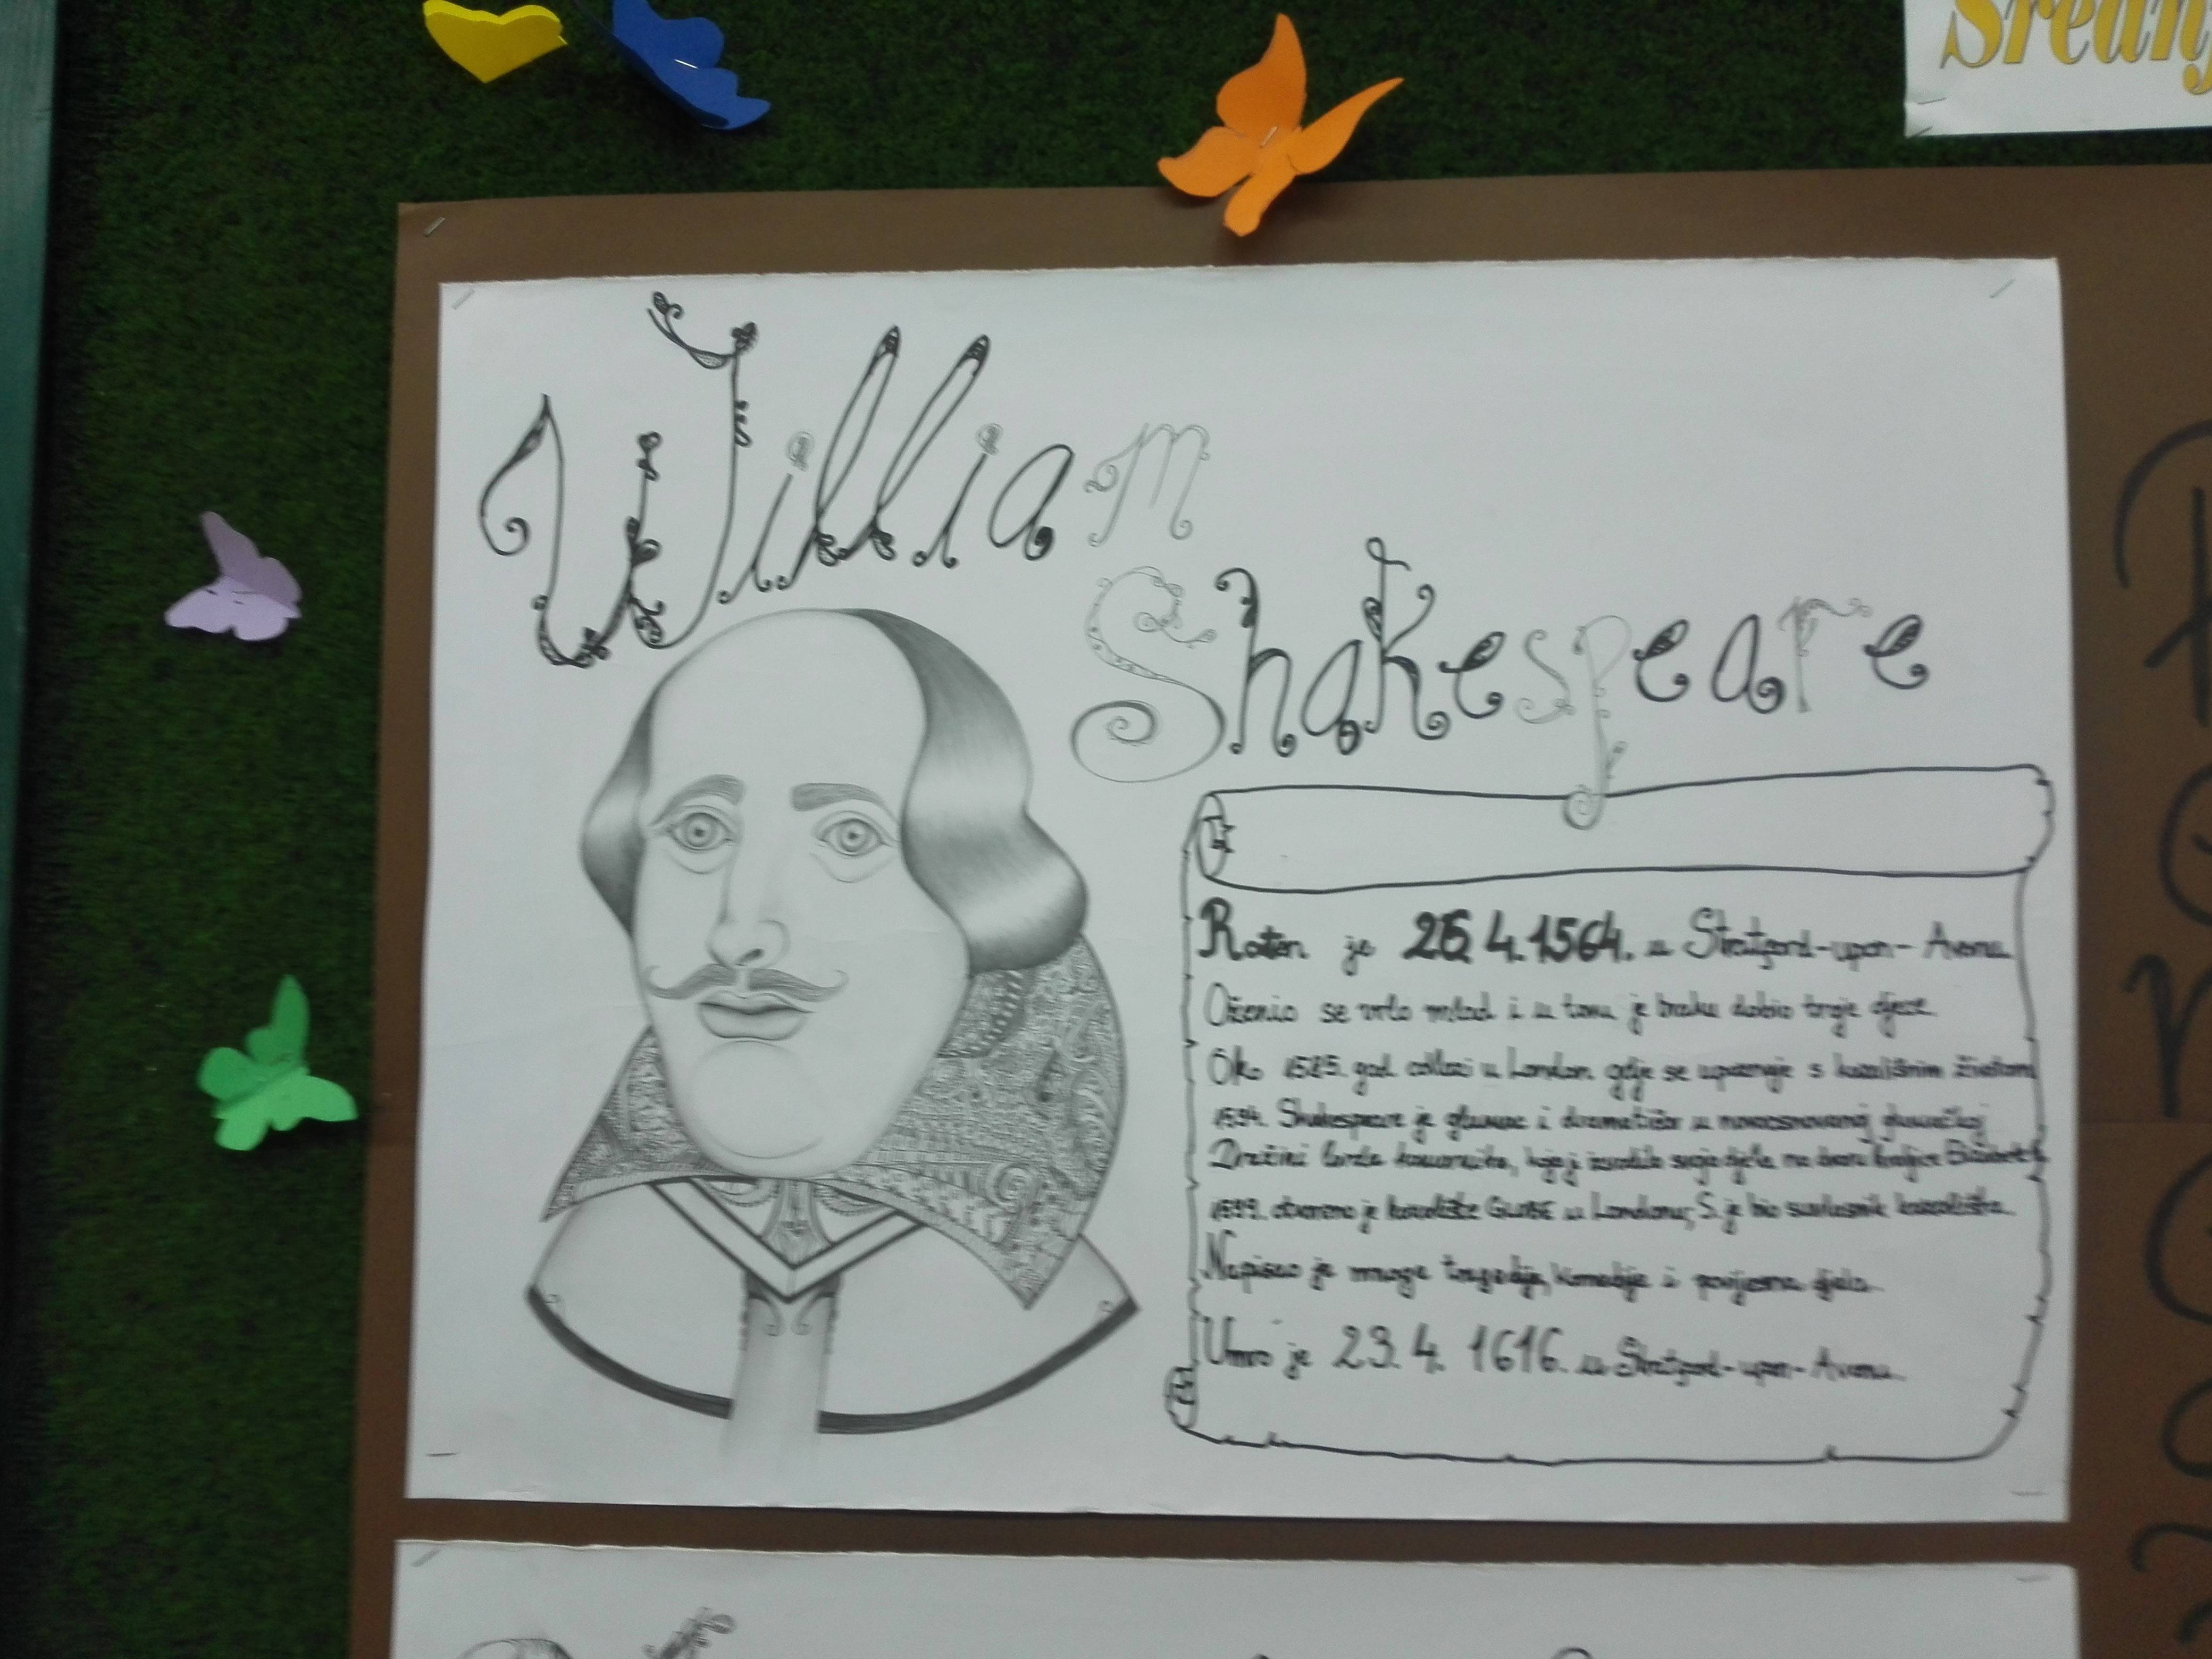 Sredn
William
Shakespeare
Rođen je 26.4.1564. u Stratford-upon-Avonu
Oženio se vrlo mlad i u tom je braku dobio troje djece.
Oko 1585. god. odlazi u London gdje se upoznaje s kazališnim životom
1594. Shakespeare je glumac i dramatičar u novoosnovanoj glumačkoj
Družini lorda komornika, koja je izvodila svoje djela na dvoru kraljice Elizabete
1599. otvoreno je kazalište GLOBE u Londonu, S. je bio suvlasnik kazališta.
Napisao je mnoge tragedije, komedije i povijesna djela.
Umro je 23.4. 1616. u Stratford-upon-Avonu.